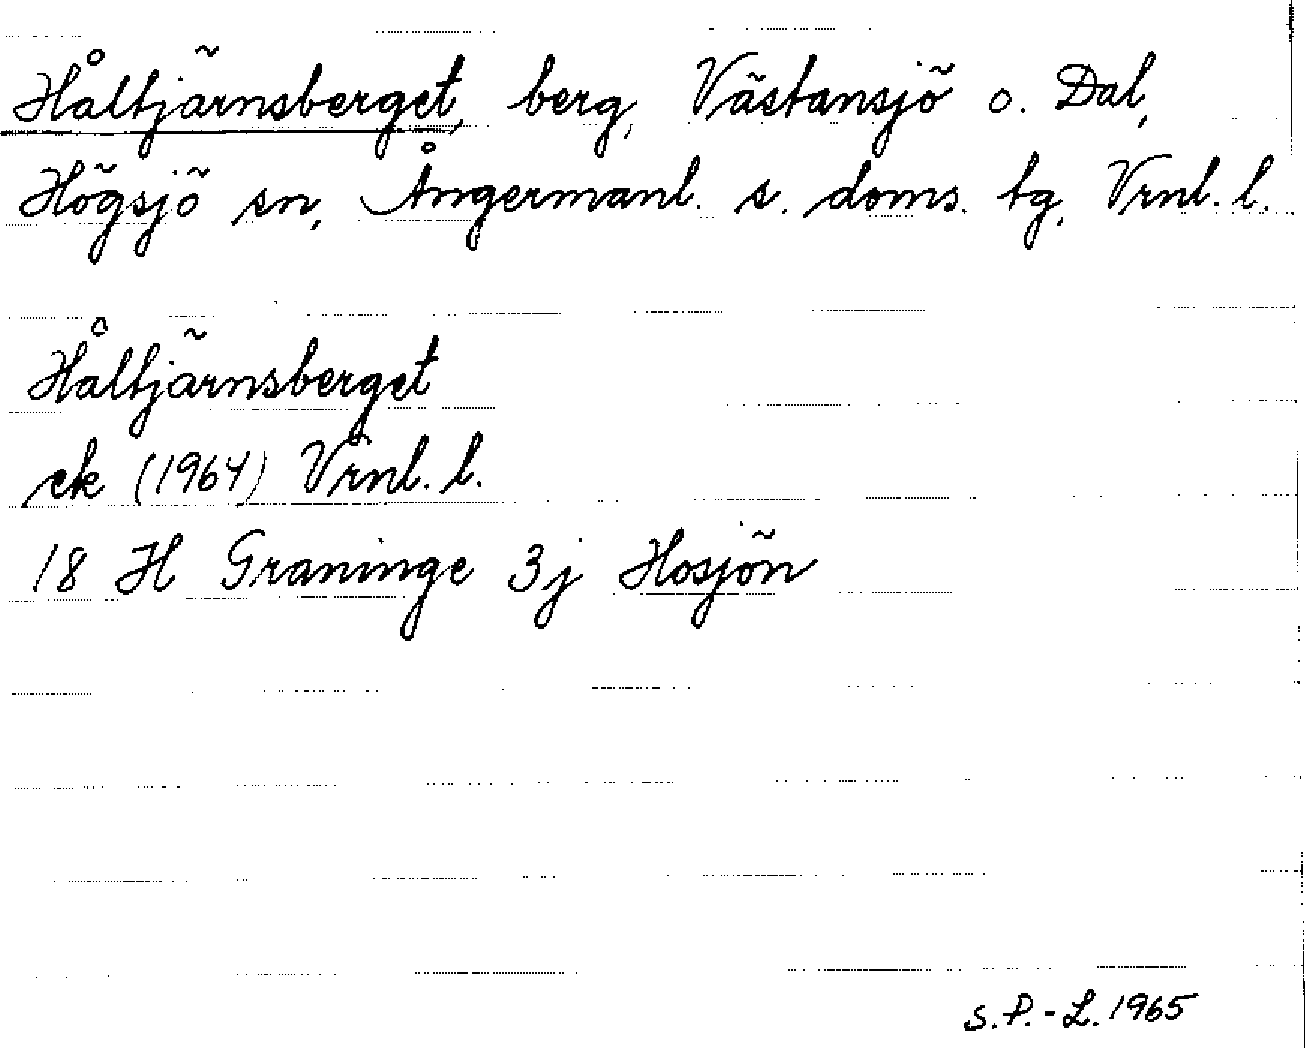 Håltjärnsberget, berg, Västansjö o. Dal,
Högsjö sn, Ångermanl. s. doms. tg, Vrnl. l.
Håltjärnsberget
ek (1964) Vrnl. l.
18 H Graninge 3j Hosjön
S.P.-L. 1965